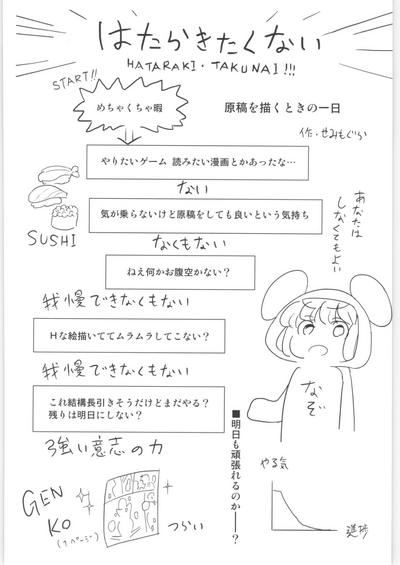 はたらきたくない
HATARAKI・TAKUNAI!!!
START!!
めちゃくちゃ暇
原稿を描くときの一日
作・せみもぐら
やりたいゲーム 読みたい漫画とかあったな…
ない
気が乗らないけど原稿をしても良いという気持ち
SUSHI
なくもない
あなたは
しなくてもよい
ねえ何かお腹空かない？
我慢できなくもない
Ｈな絵描いててムラムラしてこない？
我慢できなくもない
これ結構長引きそうだけどまだやる？
残りは明日にしない？
なぞ
強い意志の力
■明日も頑張れるのか――？
やる気
進捗
GEN
KO
(1ページ)
つらい